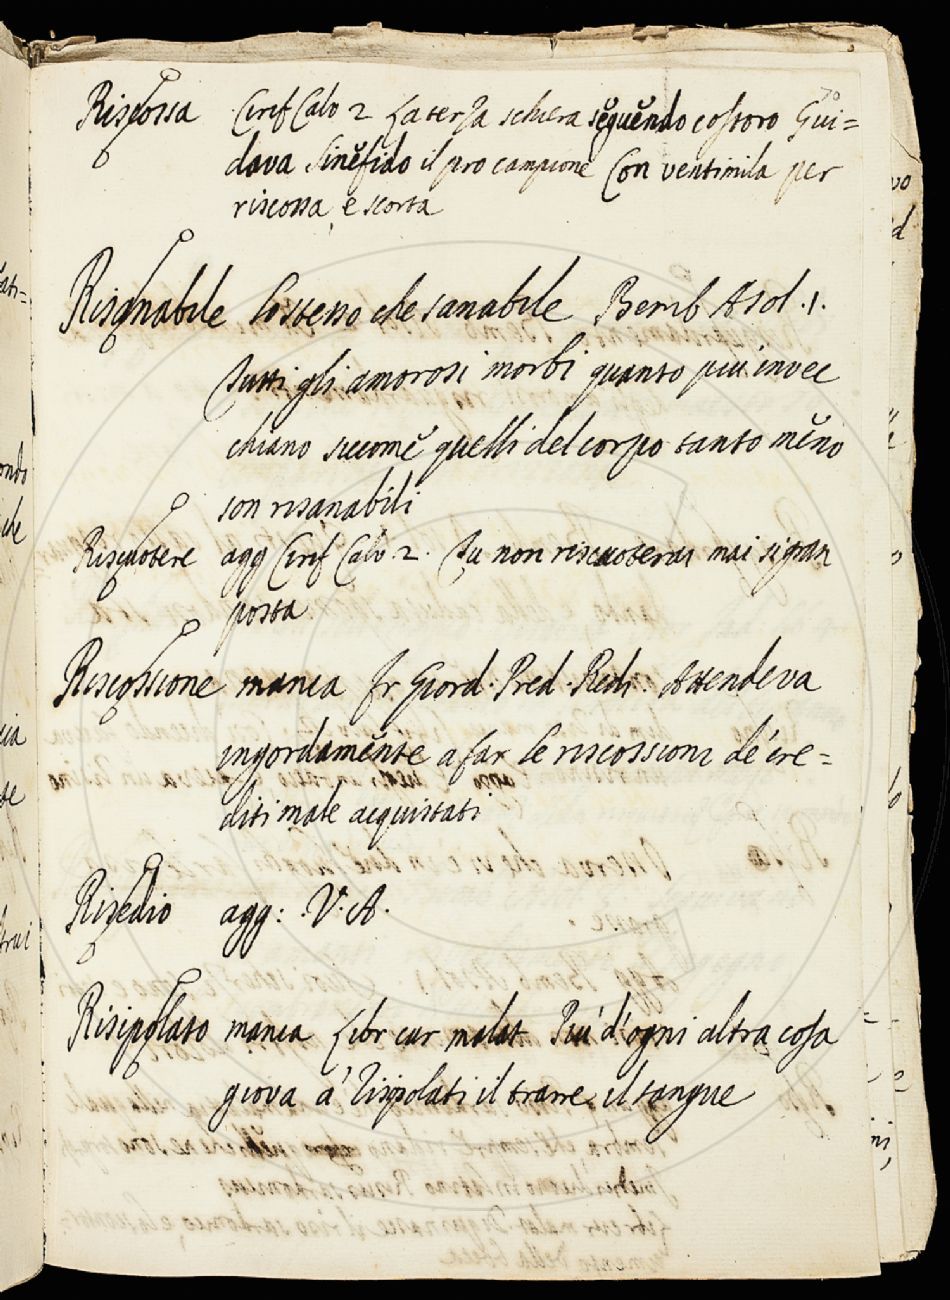 70
Riscossa Cirif Calv 2 La terza schiera seguendo costoro Gui=
dava Sinefido il pro campione Con ventimila per
riscossa, e scorta
Risanabile Lo stesso che sanabile Bemb Asol. 1.
Tutti gli amorosi morbi quanto piu invec
chiano siccome quelli del corpo tanto meno
son risanabili
Riscuotere agg Cirif Calv 2. Tu non riscuoterai mai si gran
posta
Riscossione manca Fr Giord. Pred. Redi. Attendeva
ingordamente a far le riscossioni de' cre=
diti male acquistati
Risedio agg: V. A.
Risipolato manca Libr cur malat Più d'ogni altra cosa
giova a' risipolati il trarre il sangue